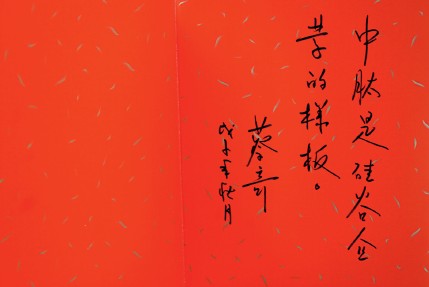 中肽是硅谷企
业的样板。
蔡奇
戊子年秋月